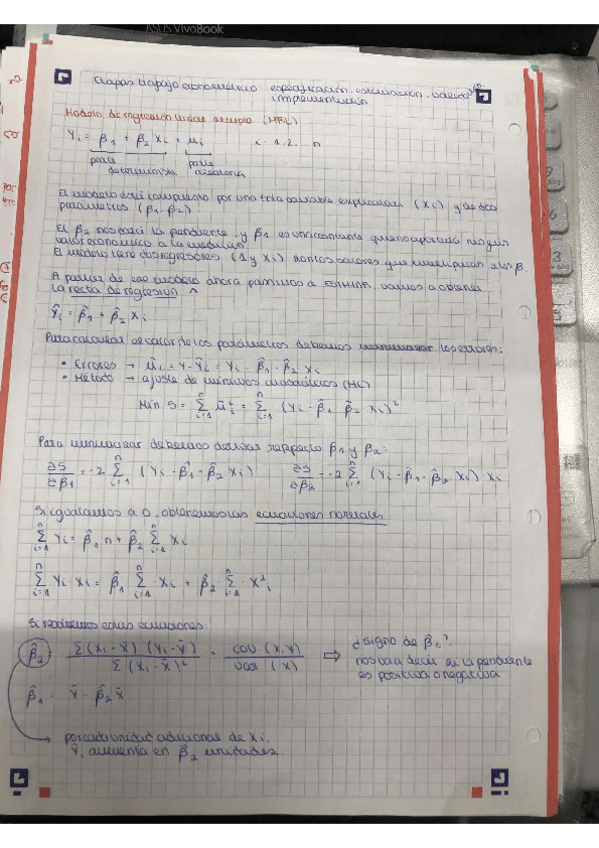 ASUS VivoBook
Etapas trabajo econométrico especificación - estimación - validación
implementación
Modelo de regresión lineal simple (MRL)
Yi = β1 + β2 Xi + μi i = 1, 2, ... n
parte determinista parte aleatoria
El modelo está compuesto por una sola variable explicativa (Xi) y de dos
parámetros (β1, β2)
El β2 nos dará la pendiente y β1 es una constante que no aportará ningún
valor económico a la
El modelo tiene dos regresores (1 y Xi) son los valores que multiplican a los β.
A partir de ese modelo ahora pasamos a ESTIMAR, vamos a obtener
la recta de regresión
Ŷi = β̂1 + β̂2 Xi
Para calcular el valor de los parámetros debemos minimizar los errores:
• Errores → μ̂i = Y - Ŷi = Yi - β̂1 - β̂2 Xi
• Método → ajuste de mínimos cuadráticos (MC)
Min S = Σ μ̂i² = Σ (Yi - β̂1 β̂2 Xi)²
Para minimizar debemos derivar respecto β1 y β2:
∂S/∂β1 = -2 Σ (Yi - β̂1 - β̂2 Xi) ∂S/∂β2 = -2 Σ (Yi - β̂1 - β̂2 Xi) Xi
Si igualamos a 0, obtenemos las ecuaciones normales
Σ Yi = β̂1 n + β̂2 Σ Xi
Σ Yi · Xi = β̂1 Σ · Xi + β̂2 Σ · X²i
Si resolvemos estas ecuaciones:
β̂2 = Σ(Xi - X̄)(Yi - Ȳ) / Σ(Xi - X̄)² = cov(X, Y) / var(X) ⇒ ¿signo de β̂2?
nos va a decir si la pendiente
es positiva o negativa
β̂1 = Ȳ - β̂2 X̄
por cada unidad adicional de Xi,
Ŷi aumenta en β̂2 unidades.